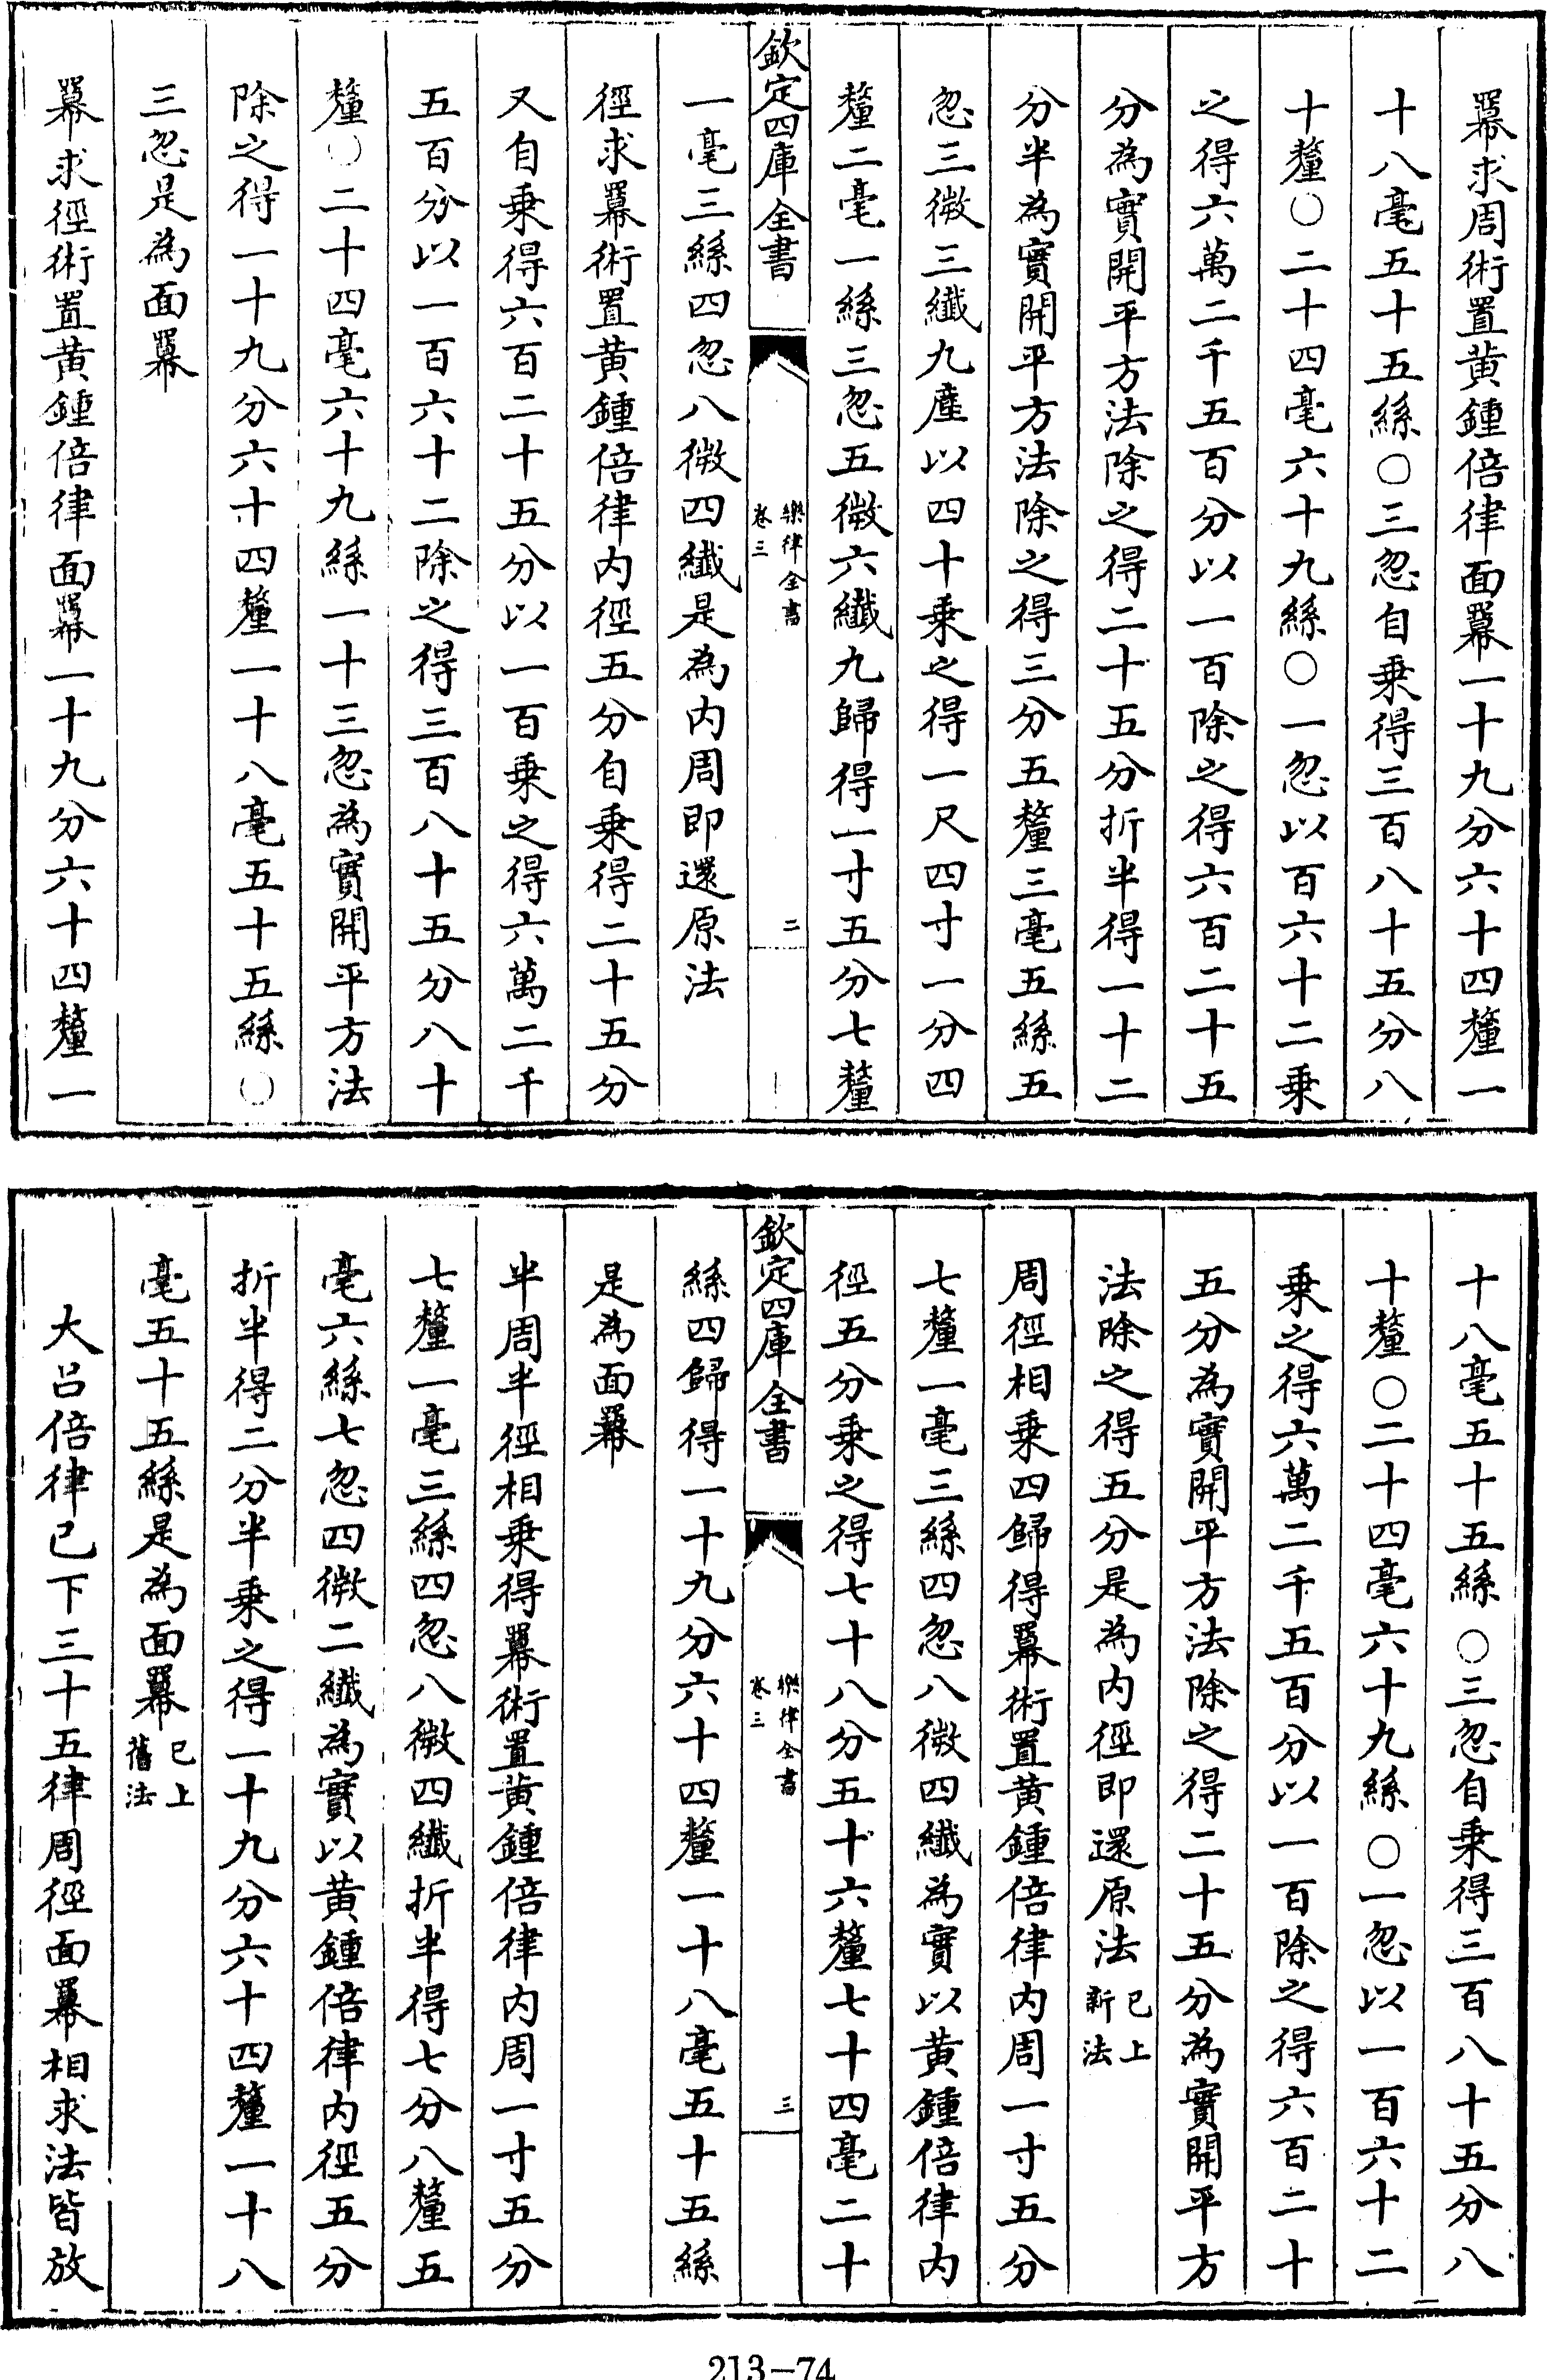 羃求周術置黄鍾倍律面羃一十九分六十四釐一
十八毫五十五絲〇三忽自乗得三百八十五分八
十釐〇二十四毫六十九絲〇一忽以百六十二乗
之得六萬二千五百分以一百除之得六百二十五
分為實開平方法除之得二十五分折半得一十二
分半為實開平方法除之得三分五釐三毫五絲五
忽三微三纖九塵以四十乗之得一尺四寸一分四
釐二毫一絲三忽五微六纖九歸得一寸五分七釐
欽定四庫全書
樂律全書
卷三
二
一毫三絲四忽八微四纖是為内周即還原法
徑求羃術置黄鍾倍律内徑五分自乗得二十五分
又自乗得六百二十五分以一百乗之得六萬二千
五百分以一百六十二除之得三百八十五分八十
釐〇二十四毫六十九絲一十三忽為實開平方法
除之得一十九分六十四釐一十八毫五十五絲〇
三忽是為面羃
羃求徑術置黄鍾倍律面羃一十九分六十四釐一
十八毫五十五絲〇三忽自乗得三百八十五分八
十釐〇二十四毫六十九絲〇一忽以一百六十二
乗之得六萬二千五百分以一百除之得六百二十
五分為實開平方法除之得二十五分為實開平方
法除之得五分是為内徑即還原法已上新法
周徑相乗四歸得羃術置黄鍾倍律内周一寸五分
七釐一毫三絲四忽八微四纖為實以黄鍾倍律内
徑五分乗之得七十八分五十六釐七十四毫二十
欽定四庫全書
樂律全書
卷三
三
絲四歸得一十九分六十四釐一十八毫五十五絲
是為面羃
半周半徑相乗得羃術置黄鍾倍律内周一寸五分
七釐一毫三絲四忽八微四纖折半得七分八釐五
毫六絲七忽四微二纖為實以黄鍾倍律内徑五分
折半得二分半乗之得一十九分六十四釐一十八
毫五十五絲是為面羃已上舊法
大呂倍律已下三十五律周徑面羃相求法皆放
213-74